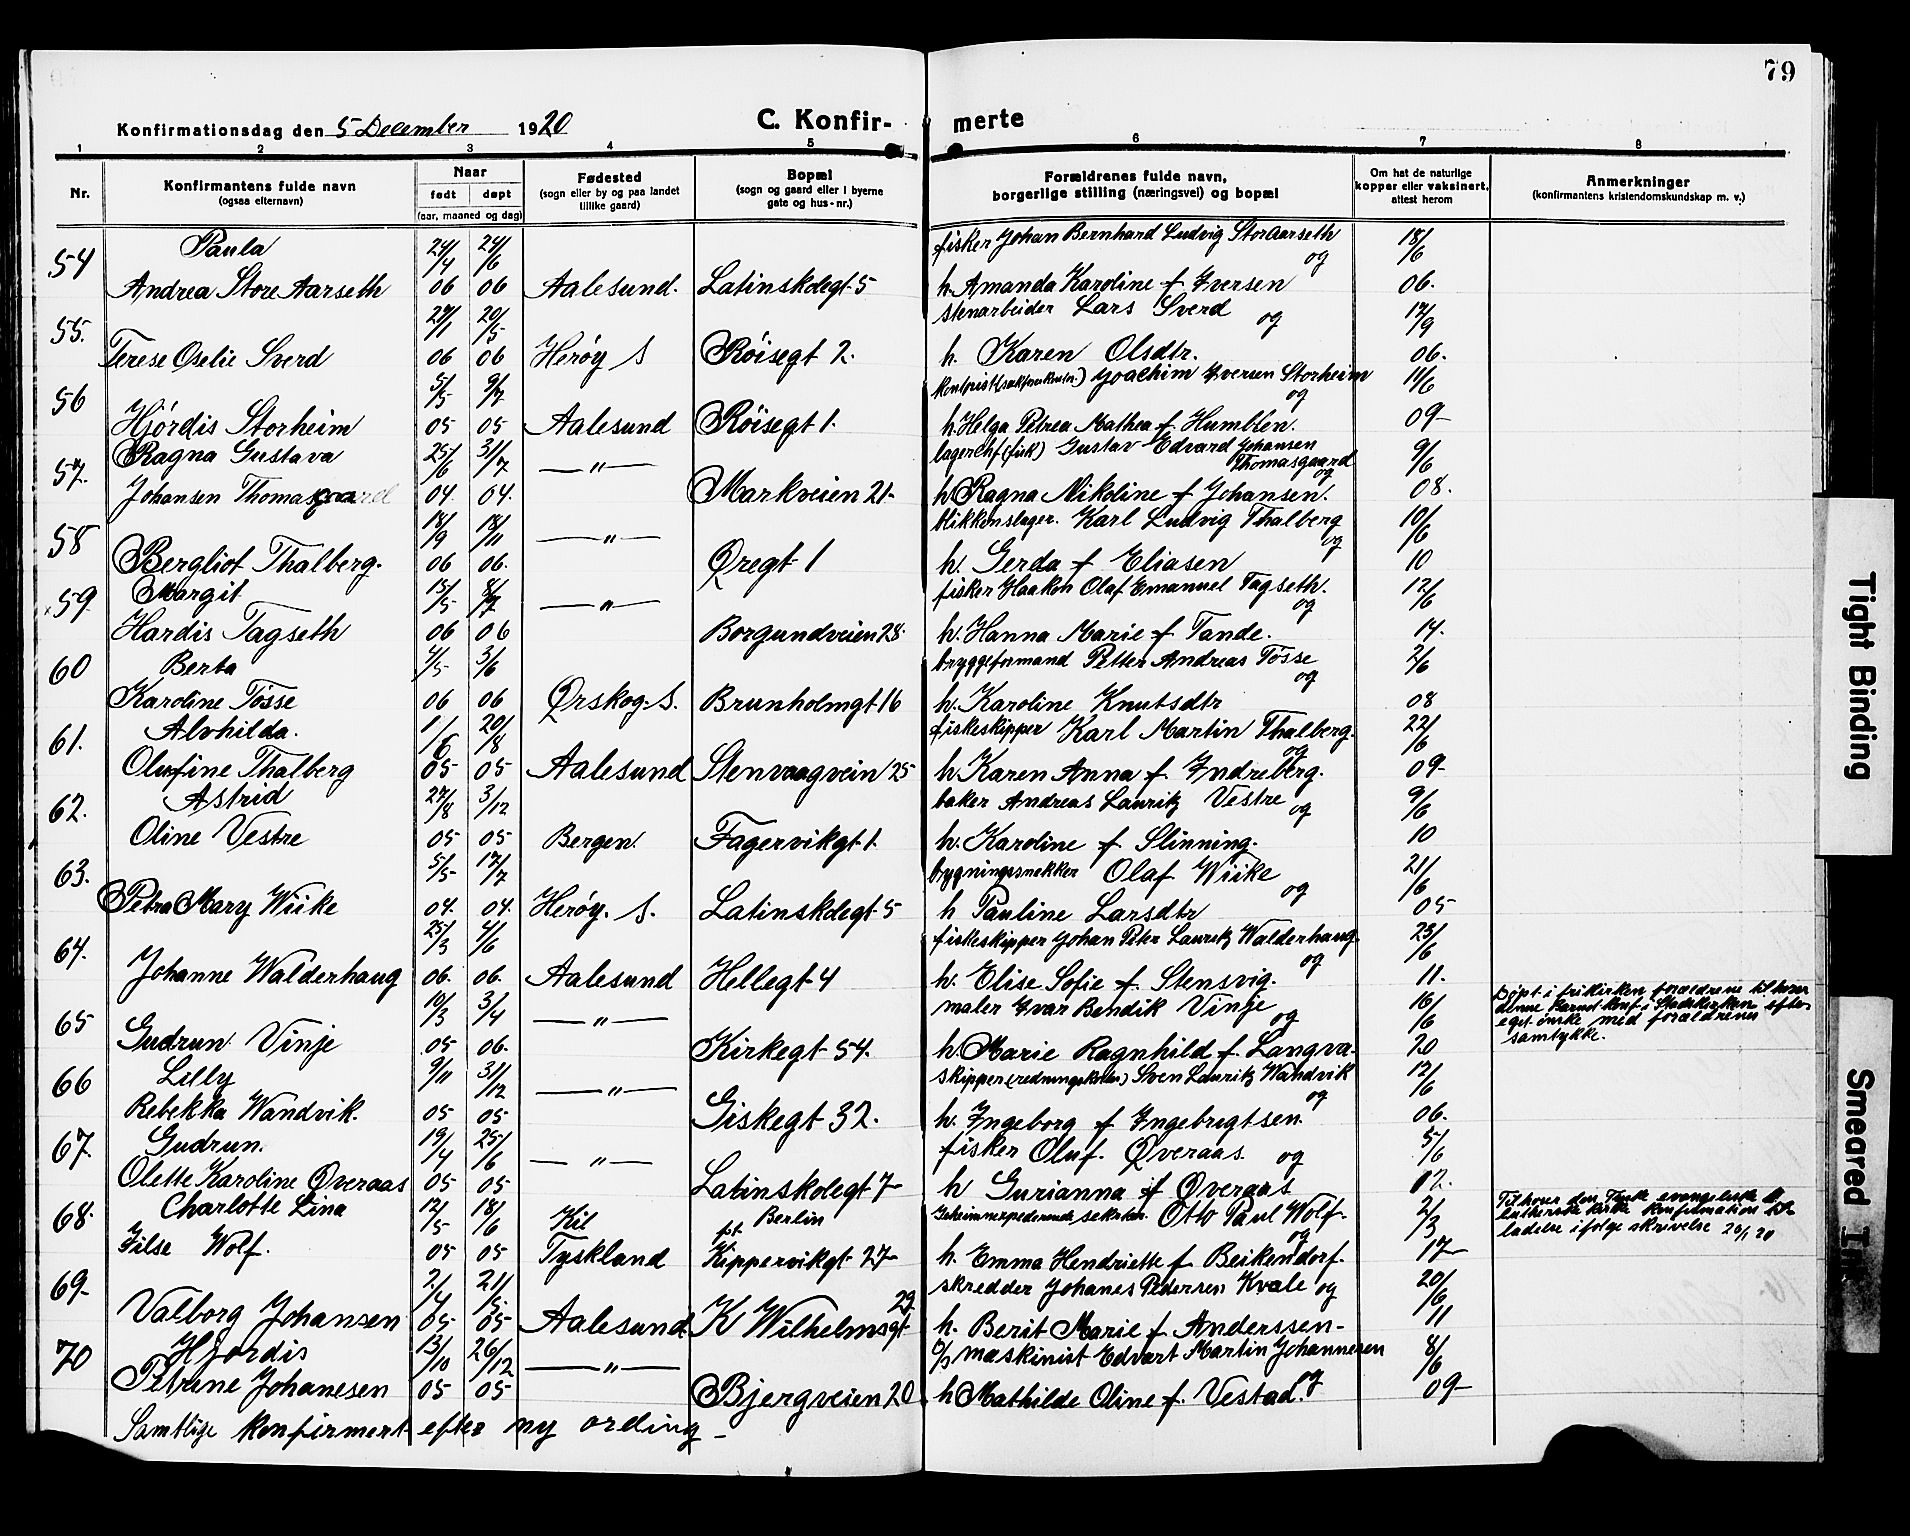 79
Konfirmationsdag den 5 December 1920 C. Konfir- merte
1 2 3 4 5 6 7 8
Nr. Konfirmantens fulde navn (ogsaa efternavn) Naar født døpt (aar, maaned og dag) Fødested (sogn eller by og paa landet tillike gaard) Bopæl (sogn og gaard eller i byerne gate og hus-nr.) Forældrenes fulde navn, borgerlige stilling (næringsvei) og bopæl Om hat de naturlige kopper eller vaksinert, attest herom Anmerkninger (konfirmantens kristendomskundskap m. v.)
54 Paula 24/4 24/6 fisker Johan Bernhard Ludvig Storaarseth og 18/6
Andrea Store Aarseth 06 06 Aalesund. Latinskolegt. 5 h. Amanda Karoline f Iversen 06.
55. 29/1 20/5 stenarbeider Lars Sverd og 17/9
Terese Oselie Sverd 06 06 Herøy S Røisegt 2. h. Karen Olsdtr. 06.
56 5/5 9/7 Joachim Iversen Storheim og 11/6
Hjørdis Storheim 05 05 Aalesund Røisegt 1. h. Helga Petrea Mathea f Humblen. 09-
57. Ragna Gustava 25/6 31/7 —"— Gustav Edvard Johansen Thomasgaard og 9/6
Johansen Thomasgaard 04. 04. Markveien 21- h Ragna Nikoline f Johansen. 08.
58 18/9 18/11 —"— blikkenslager. Karl Ludvig Thalberg og 10/6
Bergliot Thalberg. 06 06. Øregt 1 h. Gerda f Eliasen 10
x59. Margit 15/5 8/7 —"— fisker Haakon Olaf Emanuel Tagseth. og 12/6
Hardis Tagseth 06 06 Borgundveien 28. h. Hanna Marie f Tande. 14.
60 Berta 4/5 3/6 bryggeformand Petter Andreas Tösse og 2/6
Karoline Tösse 06 06 Ørskog. S. Brunholmgt 16 h. Karoline Knutsdtr 08
61. Alvhilda. 1/6 20/8 fiskeskipper Karl Martin Thalberg. og 22/6
Olufine Thalberg 05 05 Aalesund Stenvaagvein 25 h Karen Anna f Indreberg. 09-
62. Astrid 27/8 3/12 baker Andreas Lauritz Vestre og 9/6
Oline Vestre 05 05 Bergen. Fagervikgt 1. h. Karoline f Slinning. 10
63. 5/5 17/7 bygningssnekker Olaf Wiike og 21/6
Petra Mary Wiike 04. 04. Herøy. S. Latinskolegt 5 h Pauline Larsdtr 05
64. 25/3 4/6 fiskeskipper Johan Peter Lauritz Walderhaug. og 23/6
Johanne Walderhaug 06. 06. Aalesund Hellegt 4 h. Elise Sofie f Stensvig. 11.
65 10/3 3/4 —"— maler Ivar Bendik Vinje og 16/6 Döpt i frikirken forældrene tilhører
denne Barnet konf. i Stadskirken efter
eget ønske med forældrenes
samtykke.
Gudrun Vinje 05 06. Kirkegt 54. h. Marie Ragnhild f. Langva- 20
66 Lilly 9/11 31/12 —"— skipper Sven Lauritz Wandvik og 12/6
Rebekka Wandvik. 05 05 Giskegt 32. h. Ingeborg f Ingebrigtsen. 06.
67. Gudrun. 19/4 25/6 —"— fisker Oluf. Øveraas og 5/6
Olette Karoline Øveraas 05 05 Latinskolegt 7- h Gurianna f Øveraas 02.
68. Charlotte Lina 12/5 18/6 Kil pt. Berlin sekretær. Otto Paul Wolf- og 2/3 Tilhører den Tyske evangeliske
lutherske kirke konfirmation til-
ladelse ifølge skrivelse 20/1 20
Ilse Wolf. 05 05 Tyskland Kippervikgt 27- h. Emma Hendriette f Beikendorf. 17-
69. 2/4 21/5 skredder Johanes Pedersen Kvale og 20/6
Valborg Johansen 05 05 Aalesund. K Wilhelmsgt 29. h. Berit Marie f Anderssen- 11
70 Hjördis 13/10 26/12 —"— maskinist Edvart Martin Johannesen og 8/6
Petrine Johanesen 05 05 Bjergveien 20 h Mathilde Oline f. Vestad. 09-
Samtlige konfirmert efter ny ording-
Tight Binding
Smeared